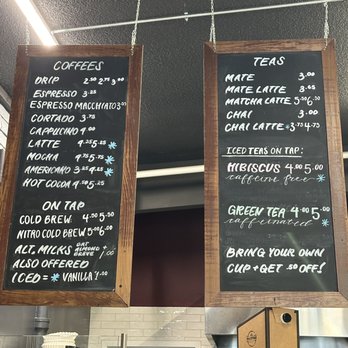 COFFEES
DRIP 2.50 2.75 3.00
ESPRESSO 3.25
ESPRESSO MACCHIATO 3.50
CORTADO 3.75
CAPPUCINO 4.00
LATTE 4.25 5.25 *
MOCHA 4.75 5.75 *
AMERICANO 3.25 4.00 *
HOT COCOA 4.25 5.25
ON TAP
COLD BREW 4.50 5.50
NITRO COLD BREW 5.00 6.00
ALT. MILKS OAT ALMOND BREVE + 1.00
ALSO OFFERED
ICED = * VANILLA 1.50
TEAS
MATE 3.00
MATE LATTE 3.65
MATCHA LATTE 5.50 6.50
CHAI 3.00
CHAI LATTE * 3.75 4.75
ICED TEAS ON TAP:
HIBISCUS 4.00 5.00
caffeine free *
GREEN TEA 4.00 5.00
caffeinated *
BRING YOUR OWN
CUP + GET .50 OFF!